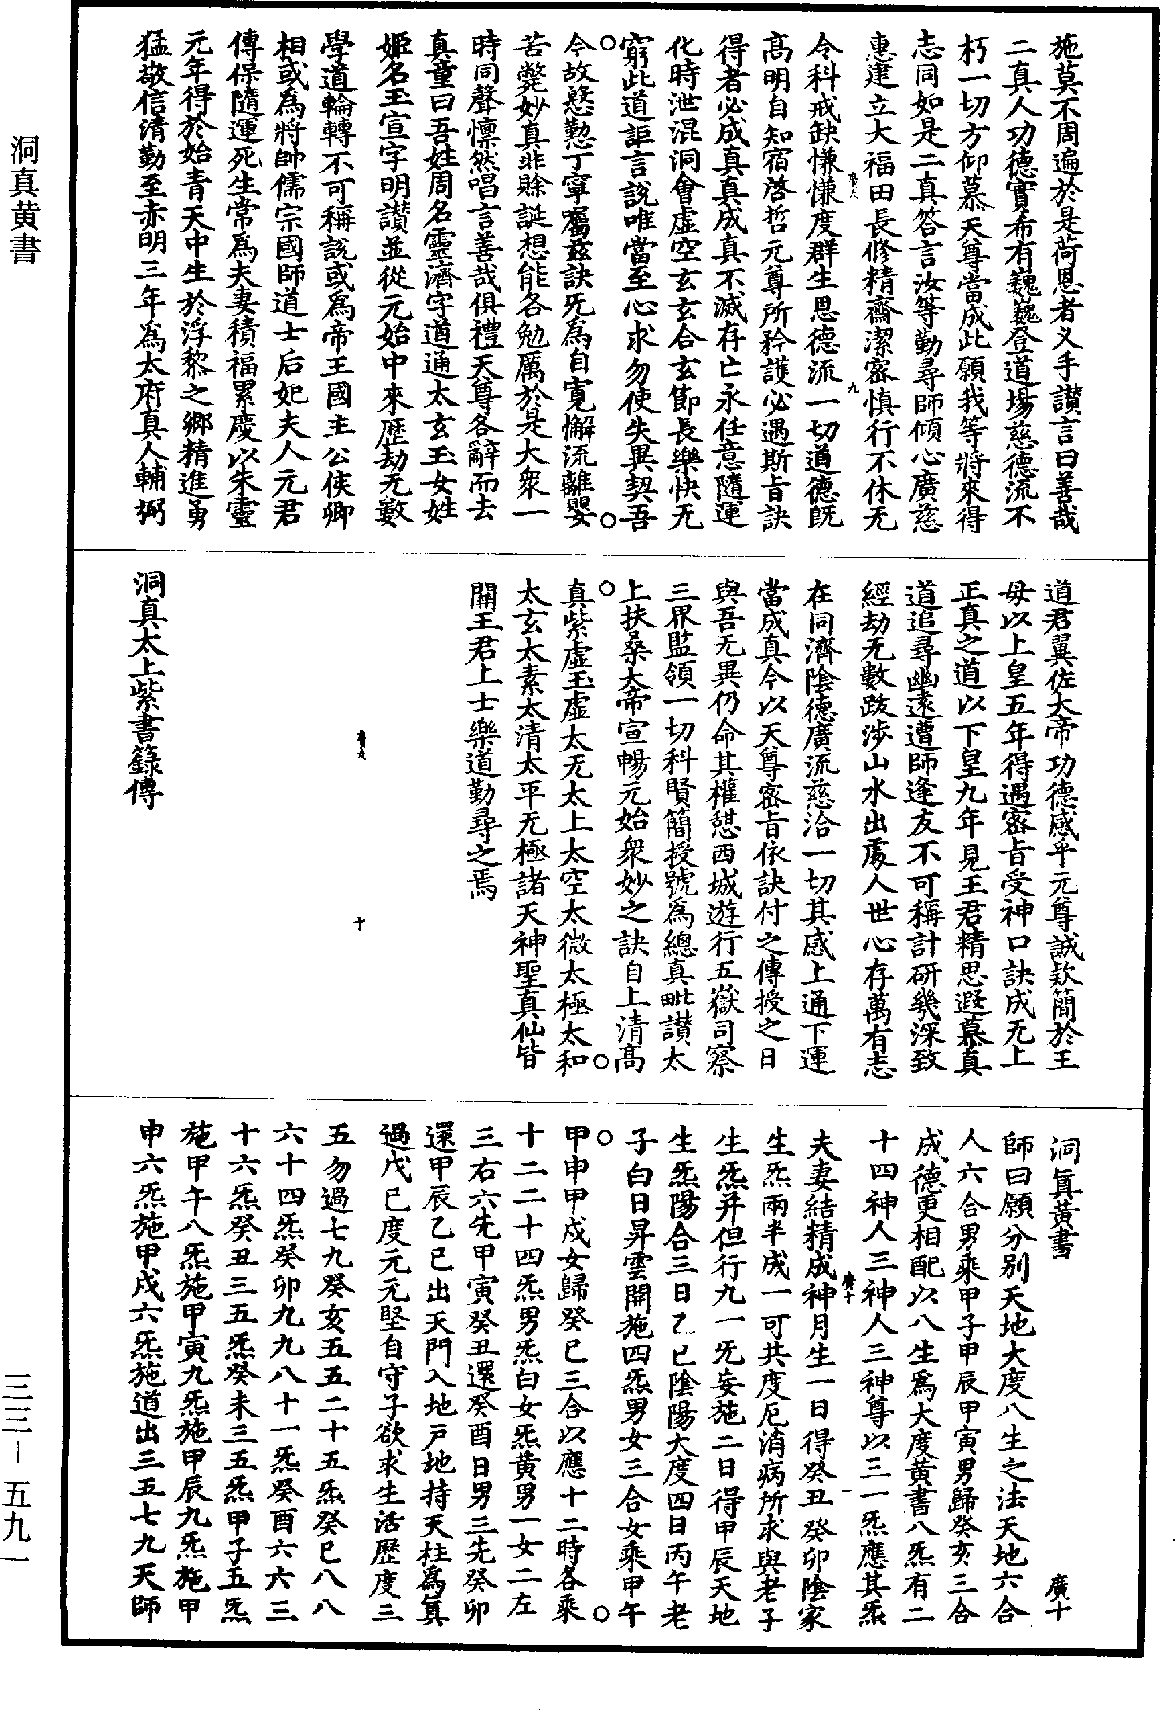 洞真黄書
三三－五九一
施莫不周遍於是荷恩者叉手讃言曰善哉
二真人功德實希有巍巍登道場慈德流不
朽一切方仰慕天尊當成此願我等將來得
志同如是二真答言汝等勤尋師傾心廣慈
惠建立大福田長修精齋潔密慎行不休无
令科戒缺慊慊度群生恩德流一切道德既
高明自知宿啓哲元尊所矜護必遇斯旨訣
得者必成真真成真不滅存亡永任意隨運
化時泄混洞會虛空玄玄合玄節長樂快无
窮此道詎言說唯當至心求勿使失異契吾
今故慇懃丁寧囑兹訣旡為自寬懈流離嬰
苦斃妙真非賖誕想能各勉厲於是大衆一
時同聲懍然唱言善哉俱禮天尊各辭而去
真童曰吾姓周名靈濟字道通太玄玉女姓
姬名玉宣字明讃並從元始中來歷劫无數
學道輪轉不可稱該或為帝王國主公侯卿
相或為將帥儒宗國師道士后妃夫人元君
傳保隨運死生常爲夫妻積福累慶以朱靈
元年得於始青天中生於浮黎之鄉精進勇
猛敬信清勤至赤明三年爲太府真人輔弼
道君翼佐大帝功德感乎元尊誠欵簡於王
母以上皇五年得遇密旨受神口訣成无上
正真之道以下皇九年見王君精思遐慕真
道追尋幽遠遭師逢友不可稱計研幾深致
經劫无數跋涉山水出處人世心存萬有志
在同濟陰德廣流慈洽一切其感上通下運
當成真今以天尊密旨依訣付之傳授之日
與吾无異仍命其權憇西城遊行五嶽司察
三界監領一切科賢簡授號爲總真毗讃太
上扶桑大帝宣暢元始衆妙之訣自上清高
真紫虛玉虛太无太上太空太微太極太和
太玄太素太清太平无極諸天神聖真仙皆
關王君上士樂道勤尋之焉
十
洞真太上紫書籙傳
洞真黄書
廣十
師曰願分别天地大度八生之法天地六合
人六合男乘甲子甲辰甲寅男歸癸亥三合
成德更相配以八生爲大度黄書八炁有二
十四神人三神人三神尊以三一炁應其炁
夫妻結精成神月生一日得癸丑癸卯陰家
生炁兩半成一可共度厄消病所求與老子
生炁并但行九一旡妄施二日得甲辰天地
生炁陽合三日乙巳陰陽大度四日丙午老
子白日昇雲開施四炁男女三合女乘甲午
甲申甲戍女歸癸巳三合以應十二時各乘
十二二十四炁男炁白女炁黄男一女二左
三右六先甲寅癸丑還癸酉日男三先癸卯
還甲辰乙巳出天門入地户地持天柱為真
過戊己度元元堅自守子欲求生活歷度三
五勿過七九癸亥五五二十五炁癸巳八八
六十四炁癸卯九九八十一炁癸酉六六三
十六炁癸丑三五炁癸未三五炁甲子五炁
施甲午八炁施甲寅九炁施甲辰九炁施甲
申六炁施甲戌六炁施道出三五七九天師